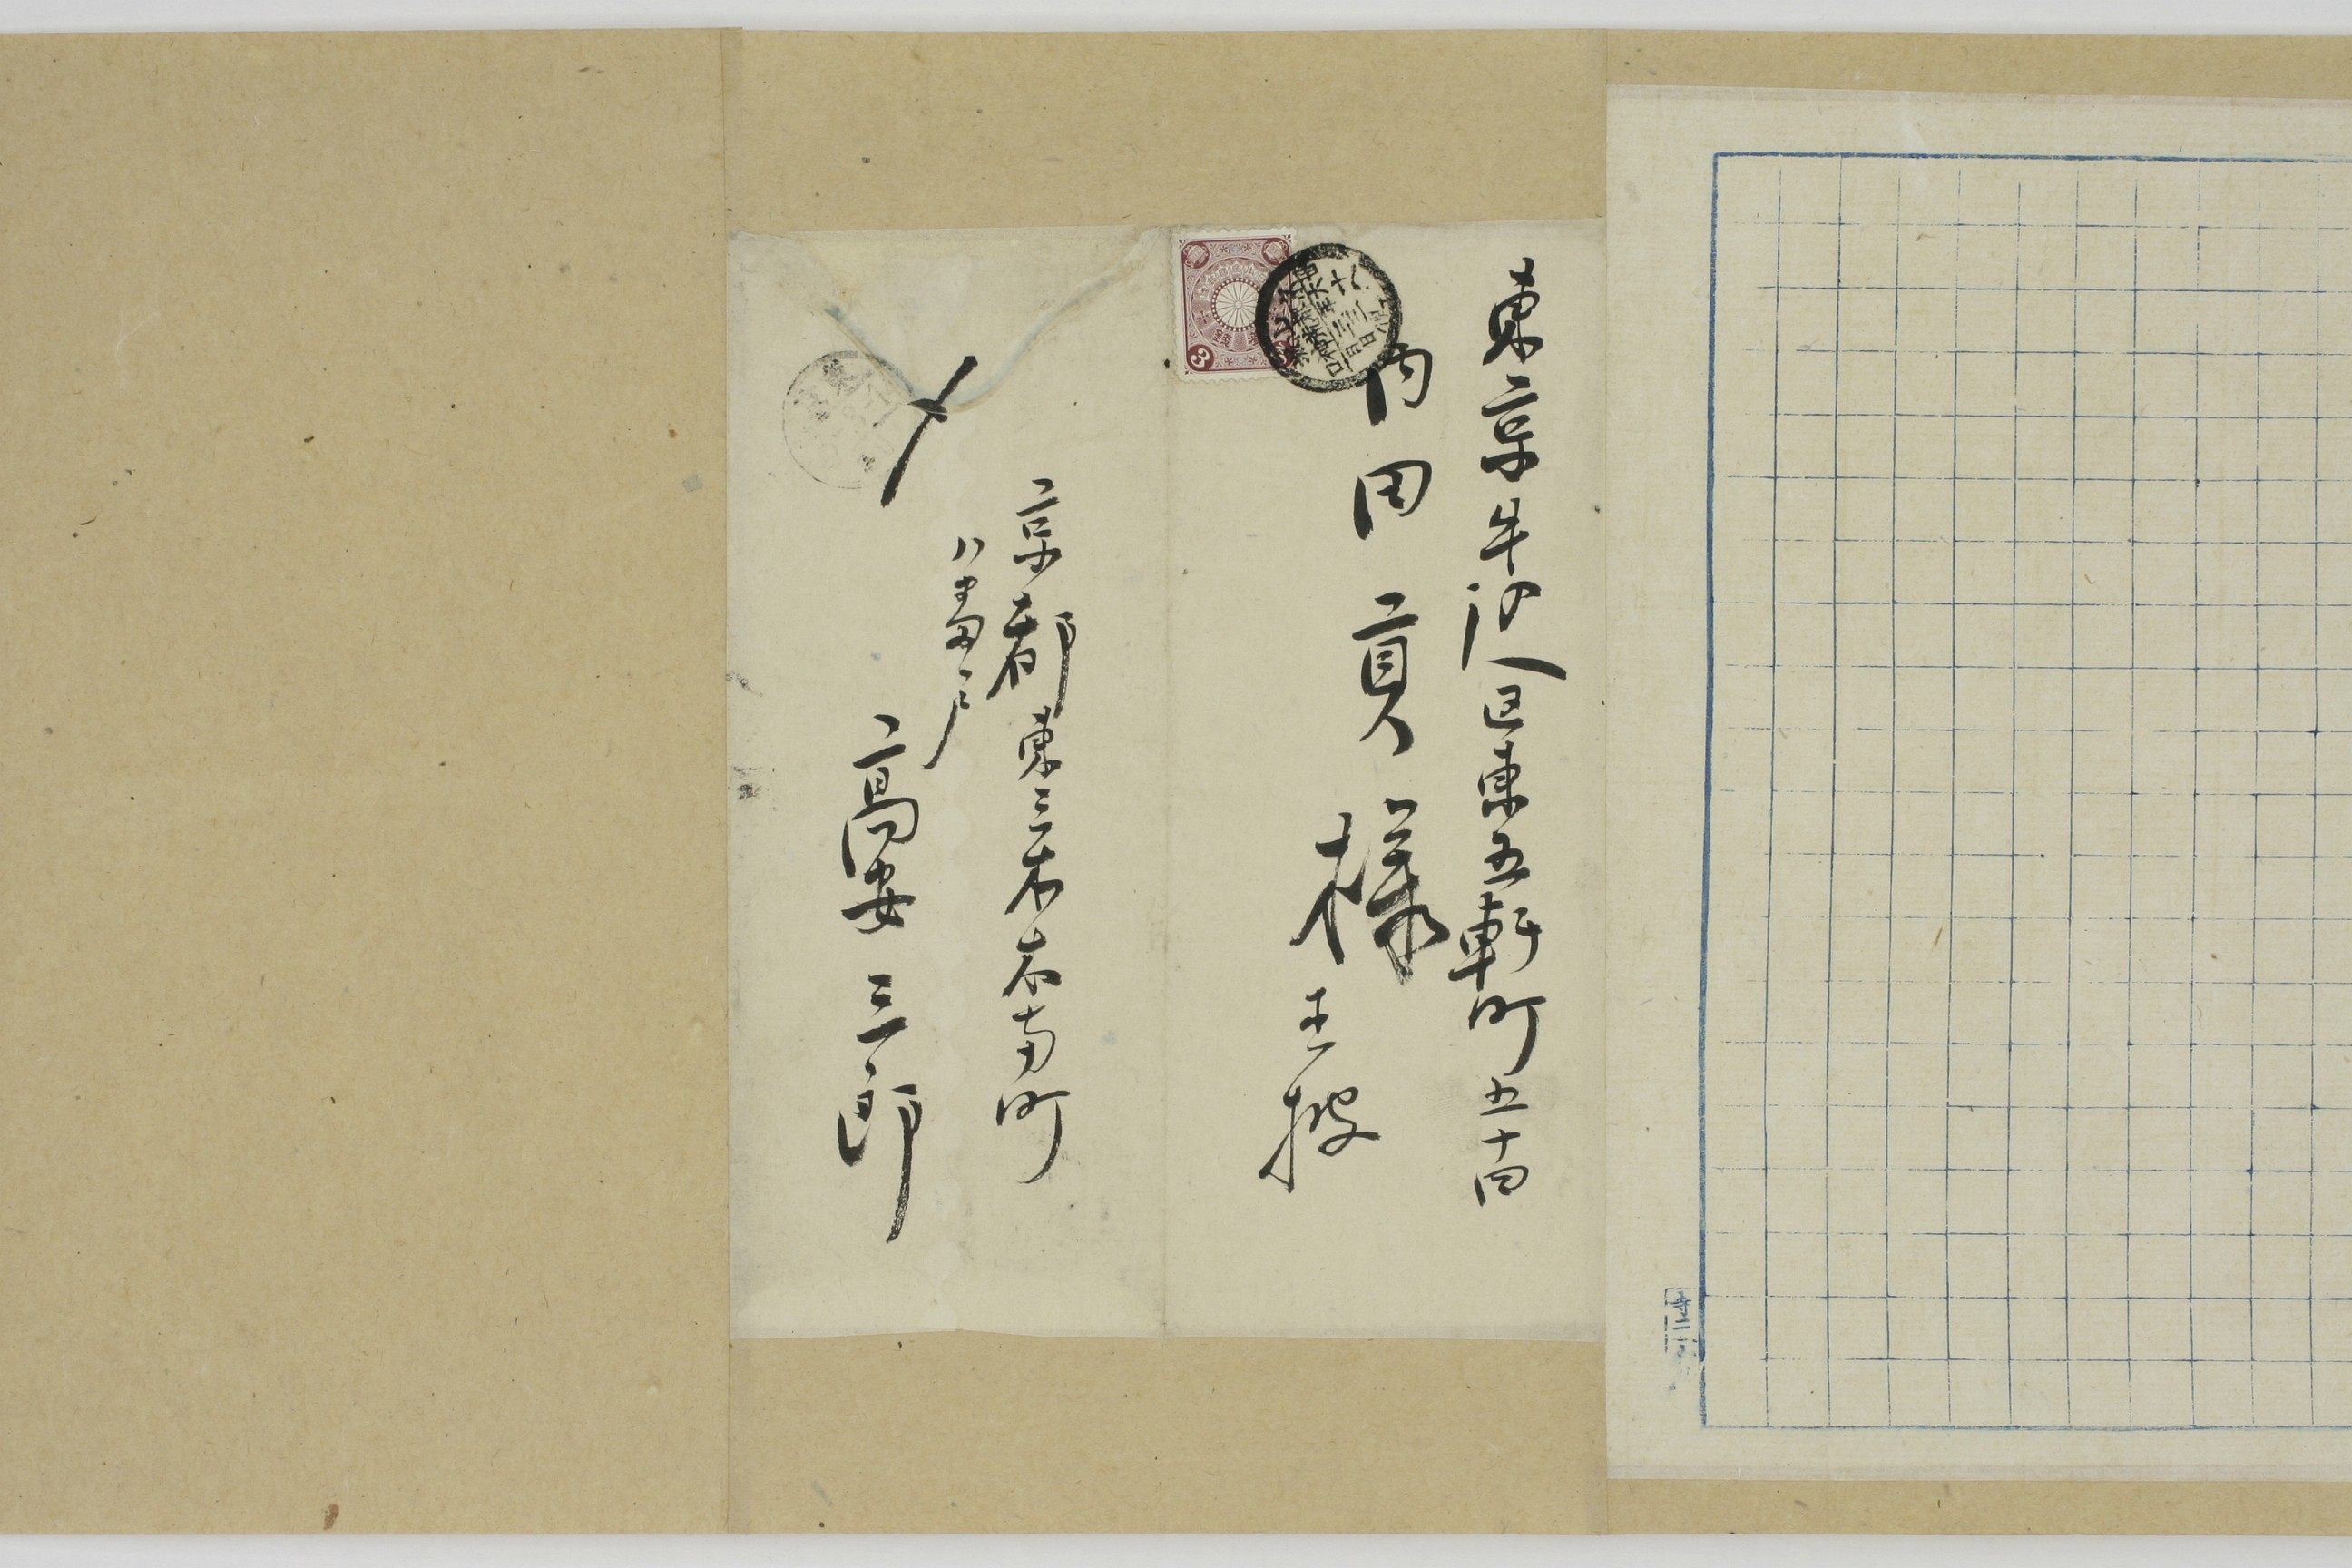 東京牛込区東五軒町五十四
内田貢様
玉披
3
〆
京都東三本木南町
八番戸
高安三郎